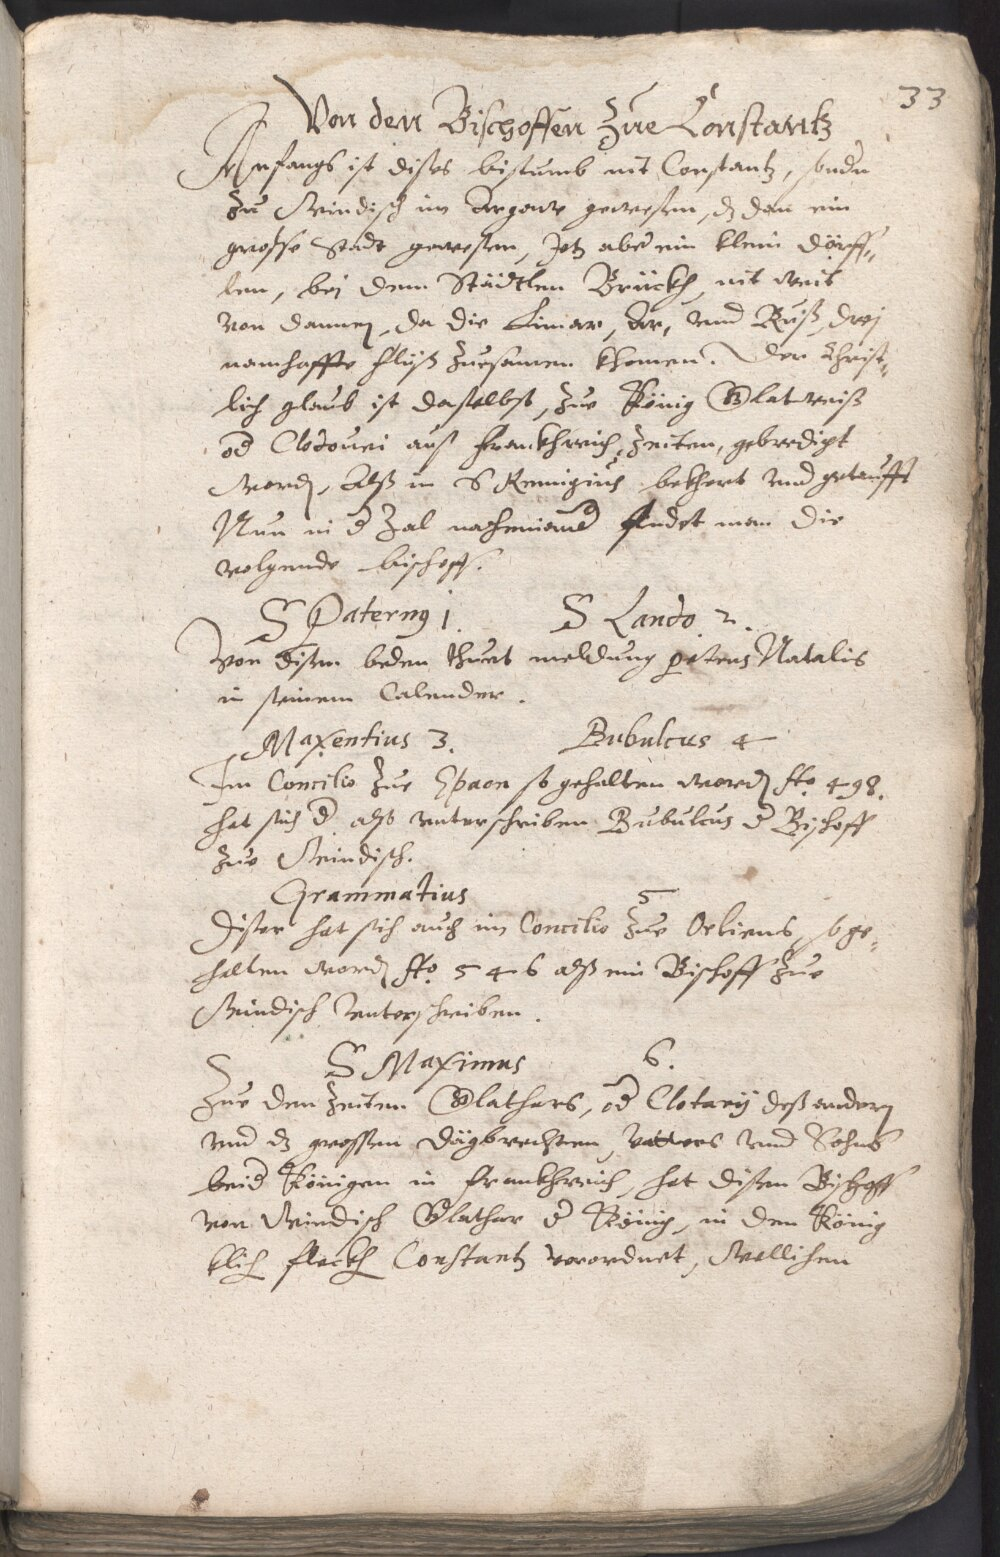 33
Von den Bischoffen Zue Constantz
Anfangs ist dises bistumb nit Constantz, sondn
zu Windisch im Argow gewesen, dz dan ein
grosse Stadt gewesen, Jetz aber ein klein dörff„
len, bei dem Städtlen Brückh, nit weit
von dannen, da die Limar, Ar, vnd Rüß, drej
namhaffte flüß zuesamen khomen. Der Christ„
lich glaub ist daselbst, zue König Clatweiß
od Clodouei auß Frankhreich Zeiten, gebredigt
word, Alß in S Remigius bekhert vnd getaufft
Nun in d Zal nacheinand findet man die
volgende bischoff.
S Paterny 1. S Lando 2.
Von disen beden thuet meldung petrus Natalis
in seinem Calender.
Maxentius 3. Bubulcus 4
Im Concilio Zue Epaon so gehalten word Ao. 498.
hat sich d also unterschriben Bubulcus d Bischoff
zue Windisch.
Grammatius 5
Diser hat sich auch im Concilio Zue Orliens, so ge„
halten word Ao. 546 alß ein Bischoff Zue
Windisch unterschriben.
S Maximus 6.
Zue den Zeiten Clathars, od Clotarij deß andern
vnd dz grossen Dägbrechten, Vatters vnd Sohns
beid Königen in Frankhreich, hat disen Bischoff
von Windisch Clathar d König, in den König
klich fleckh Constantz verordnet, Wellichen